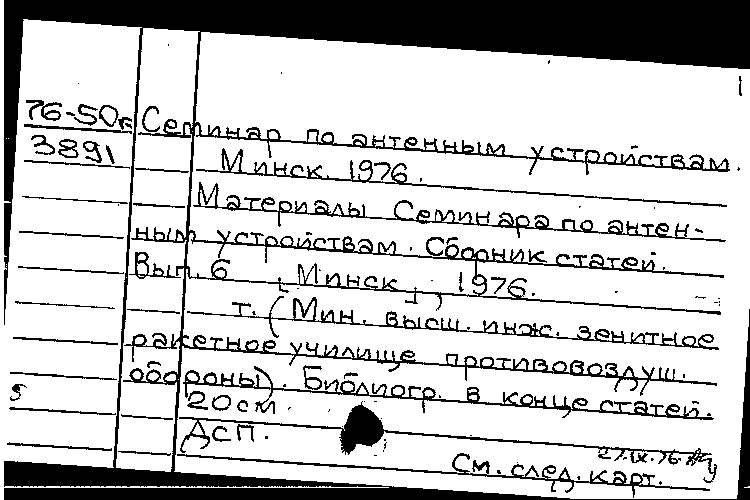 1
76-50к Семинар по антенным устройствам.
3891 Минск. 1976.
Материалы Семинара по антен-
ным устройствам. Сборник статей.
Вып. 6 [Минск], 1976.
т. (Мин. высш. инж. зенитное
ракетное училище противовоздуш.
обороны). Библиогр. в конце статей.
20см.
ДСП.
27.IX.76
См. след. карт.